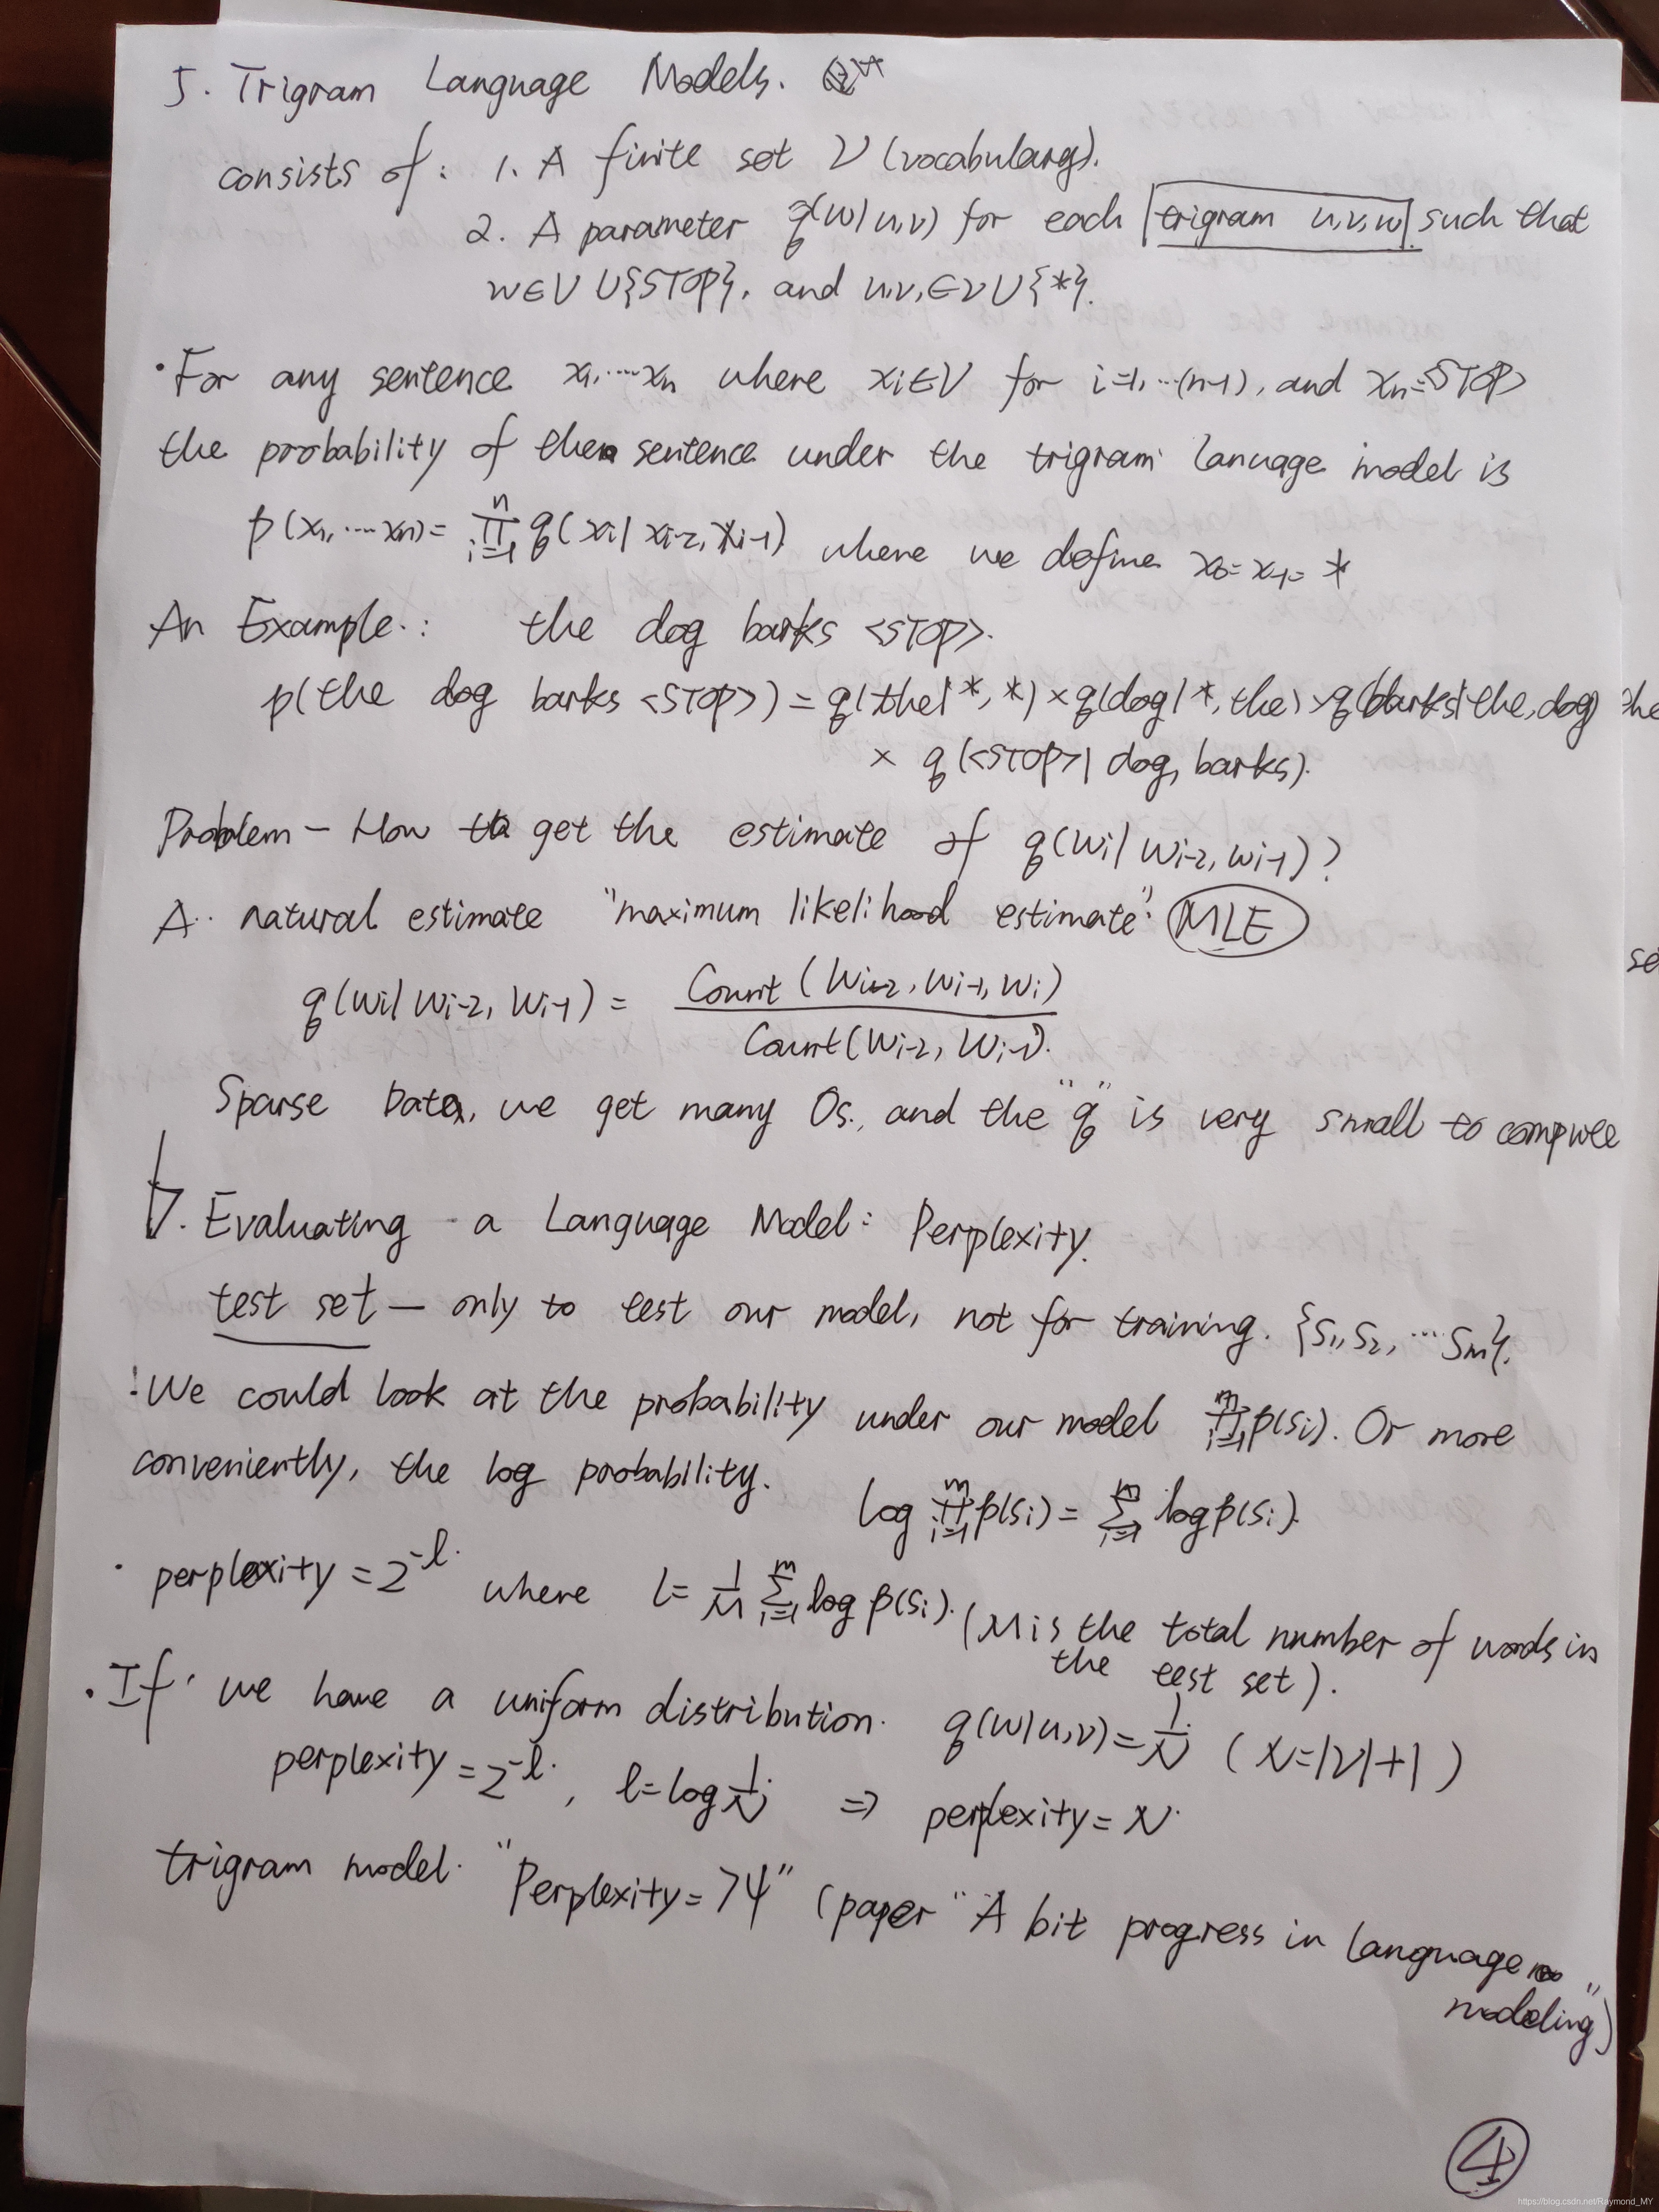 5. Trigram Language Models.
consists of: 1. A finite set V (vocabulary).
2. A parameter q(w|u,v) for each trigram u,v,w such that
w∈V∪{STOP}, and u,v,∈V∪{*}.
·For any sentence x₁,...xₙ where xᵢ∈V for i=1,...(n-1), and xₙ=<STOP>
the probability of the sentence under the trigram lanuage model is
p(x₁,...xₙ)= ∏ᵢ₌₁ⁿ q(xᵢ|xᵢ₋₂,xᵢ₋₁) where we define x₀=x₋₁=*
An Example: the dog barks <STOP>.
p(the dog barks <STOP>)=q(the|*,*)×q(dog|*,the)×q(barks|the,dog)
× q(<STOP>|dog, barks).
Problem - How to get the estimate of q(wᵢ|wᵢ₋₂,wᵢ₋₁)?
A natural estimate "maximum likelihood estimate". MLE
q(wᵢ|wᵢ₋₂, wᵢ₋₁) = Count(wᵢ₋₂, wᵢ₋₁, wᵢ) / Count(wᵢ₋₂, wᵢ₋₁).
Sparse Data, we get many 0s., and the "q" is very small to compute
6. Evaluating a Language Model: Perplexity.
test set — only to test our model, not for training. {S₁,S₂,...Sₘ}.
!We could look at the probability under our model ∏ᵢ₌₁ᵐ p(sᵢ). Or more
conveniently, the log probability.
log ∏ᵢ₌₁ᵐ p(sᵢ)= ∑ᵢ₌₁ᵐ log p(sᵢ).
· perplexity = 2⁻ˡ where l= 1/M ∑ᵢ₌₁ᵐ log p(sᵢ). (M is the total number of words in
the test set).
·If we have a uniform distribution. q(w|u,v)=1/N (N=|V|+1)
perplexity = 2⁻ˡ, l=log 1/N ⇒ perplexity = N.
trigram model. "Perplexity=74" (paper "A bit progress in language
modeling")
4
https://blog.csdn.net/Raymond_MY